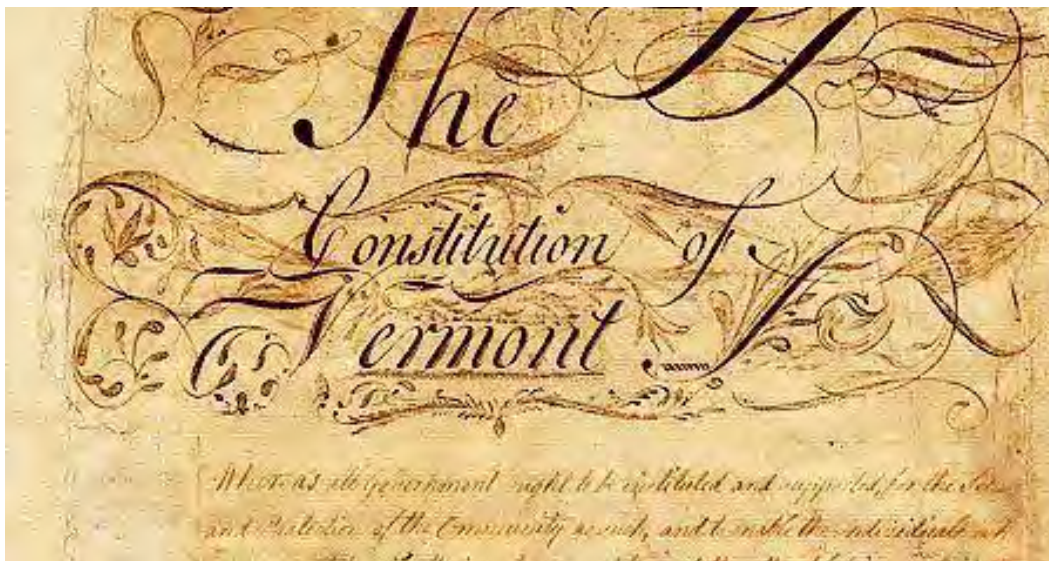 The
Constitution of
Vermont
Whereas all Government ought to be instituted and supported for the
and Protection of the Community as such, and to enable the individuals